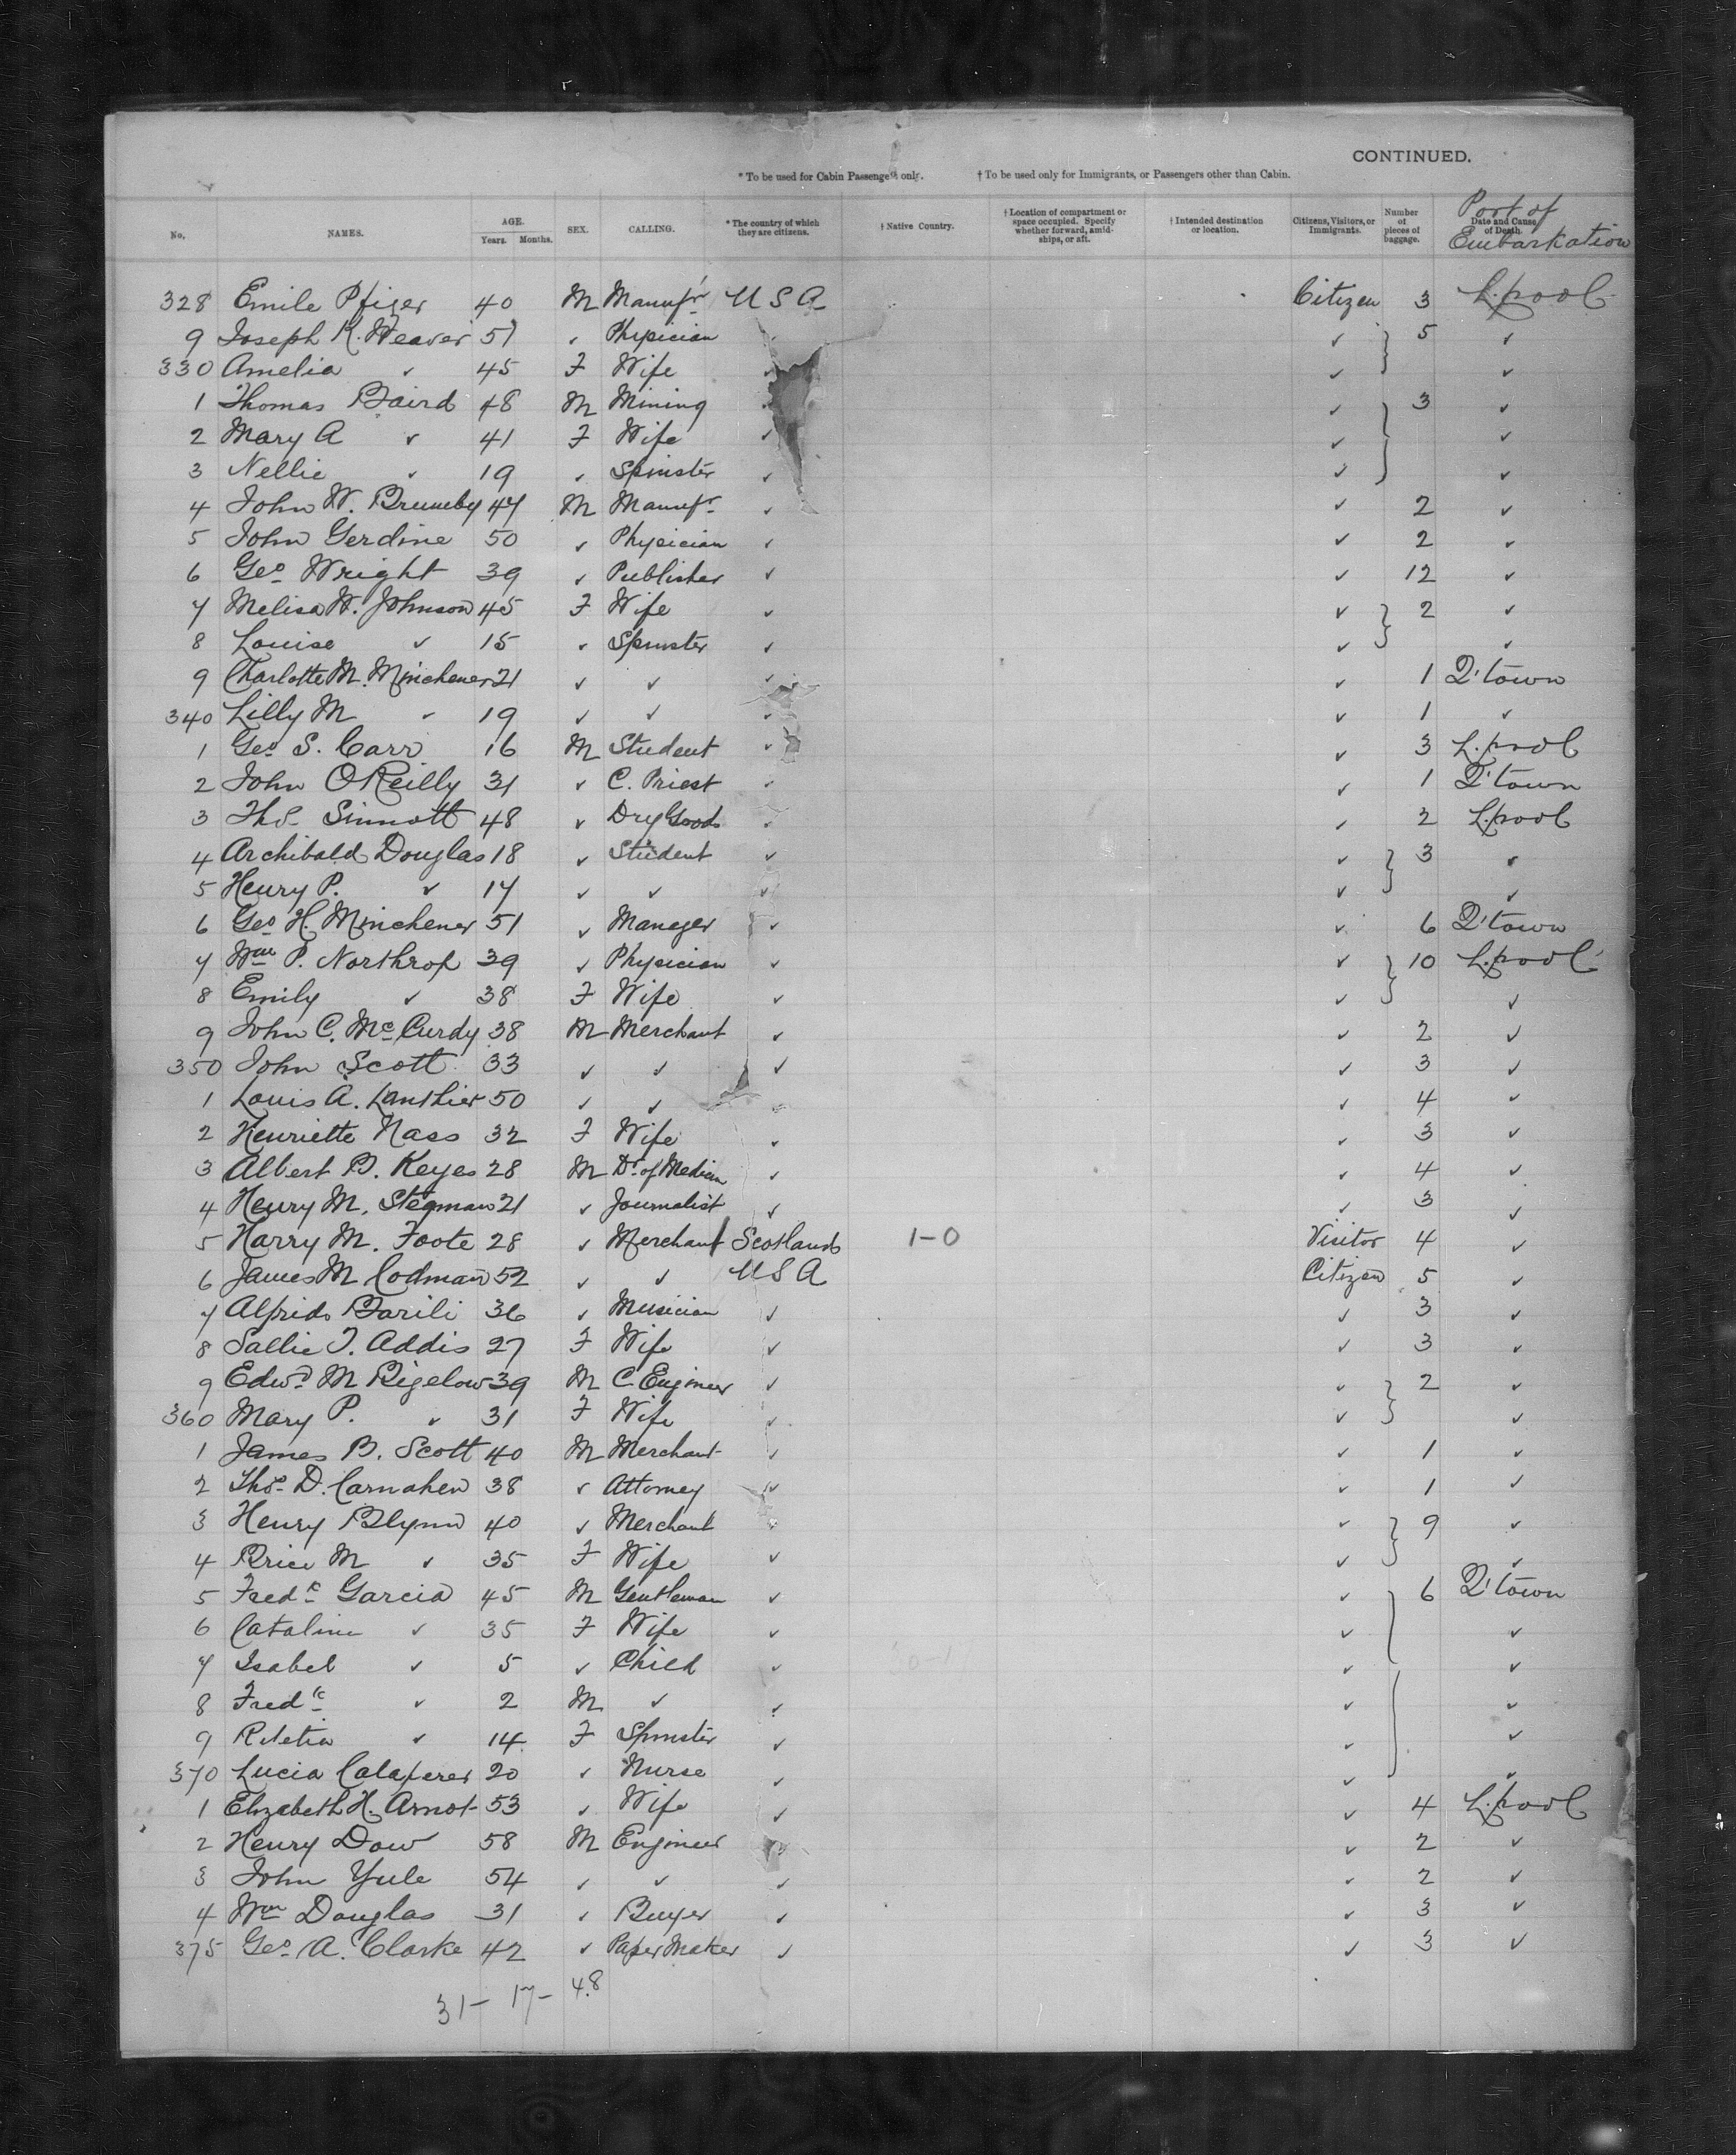 CONTINUED.
* To be used for Cabin Passengers only. † To be used only for Immigrants, or Passengers other than Cabin.
No. NAMES. AGE. Years. Months. SEX. CALLING. * The country of which they are citizens. † Native Country. † Location of compartment or space occupied. Specify whether forward, amidships, or aft. † Intended destination or location. Citizens, Visitors, or Immigrants. Number of pieces of baggage. Date and Cause of Death. Port of Embarkation
328 Emile Pfizer 40 M Manufr U S A Citizen 3 L.pool
9 Joseph K. Weaver 51 ✓ Physician ✓ ✓ } 5 ✓
330 Amelia ✓ 45 F Wife ✓ ✓ ✓
1 Thomas Baird 48 M Mining ✓ ✓ } 3 ✓
2 Mary A ✓ 41 F Wife ✓ ✓ ✓
3 Nellie ✓ 19 ✓ Spinster ✓ ✓ ✓
4 John W. Brumby 47 M Manufr ✓ ✓ 2 ✓
5 John Gerdine 50 ✓ Physician ✓ ✓ 2 ✓
6 Geo Wright 39 ✓ Publisher ✓ ✓ 12 ✓
7 Melisa W. Johnson 45 F Wife ✓ ✓ } 2 ✓
8 Louise ✓ 15 ✓ Spinster ✓ ✓ ✓
9 Charlotte M. Minchener 21 ✓ ✓ ✓ ✓ 1 Q'town
340 Lilly M ✓ 19 ✓ ✓ ✓ ✓ 1 ✓
1 Geo S. Carr 16 M Student ✓ ✓ 3 L.pool
2 John O'Reilly 31 ✓ C. Priest ✓ ✓ 1 Q'town
3 Thos Sinnott 48 ✓ Dry Goods ✓ ✓ 2 L.pool
4 Archibald Douglas 18 ✓ Student ✓ ✓ } 3 ✓
5 Henry P. ✓ 17 ✓ ✓ ✓ ✓ ✓
6 Geo H. Minchener 51 ✓ Manager ✓ ✓ 6 Q'town
7 Wm P. Northrop 39 ✓ Physician ✓ ✓ } 10 L.pool
8 Emily ✓ 38 F Wife ✓ ✓ ✓
9 John C. McCurdy 38 M Merchant ✓ ✓ 2 ✓
350 John Scott 33 ✓ ✓ ✓ ✓ 3 ✓
1 Louis A. Lanthier 50 ✓ ✓ ✓ ✓ 4 ✓
2 Henriette Nass 32 F Wife ✓ ✓ 3 ✓
3 Albert B. Keyes 28 M Dr of Medicin ✓ ✓ 4 ✓
4 Henry M. Stegman 21 ✓ Journalist ✓ ✓ 3 ✓
5 Harry M. Foote 28 ✓ Merchant Scotland 1-0 Visitor 4 ✓
6 James M Codman 52 ✓ ✓ U S A Citizen 5 ✓
7 Alfrido Barili 36 ✓ Musician ✓ ✓ 3 ✓
8 Sallie T. Addis 27 F Wife ✓ ✓ 3 ✓
9 Edwd M Bigelow 39 M C. Engineer ✓ ✓ } 2 ✓
360 Mary P. ✓ 31 F Wife ✓ ✓ ✓
1 James B. Scott 40 M Merchant ✓ ✓ 1 ✓
2 Thos D. Carnahen 38 ✓ Attorney ✓ ✓ 1 ✓
3 Henry Blynn 40 ✓ Merchant ✓ ✓ } 9 ✓
4 Brice M ✓ 35 F Wife ✓ ✓ ✓
5 Fredk Garcia 45 M Gentleman ✓ ✓ } 6 Q'town
6 Catalina ✓ 35 F Wife ✓ ✓ ✓
7 Isabel ✓ 5 ✓ Child ✓ ✓ ✓
8 Fredk ✓ 2 M ✓ ✓ ✓ ✓
9 ✓ 14 F Spinster ✓ ✓ ✓
370 Lucia 20 ✓ Nurse ✓ ✓ ✓
1 Elizabeth H. Arnot 53 ✓ Wife ✓ ✓ 4 L.pool
2 Henry Dow 58 M Engineer ✓ 2 ✓
3 John Yule 54 ✓ ✓ ✓ ✓ 2 ✓
4 Wm Douglas 31 ✓ Buyer ✓ ✓ 3 ✓
375 Geo A. Clarke 42 ✓ Paper Maker ✓ ✓ 3 ✓
31- 17- 48